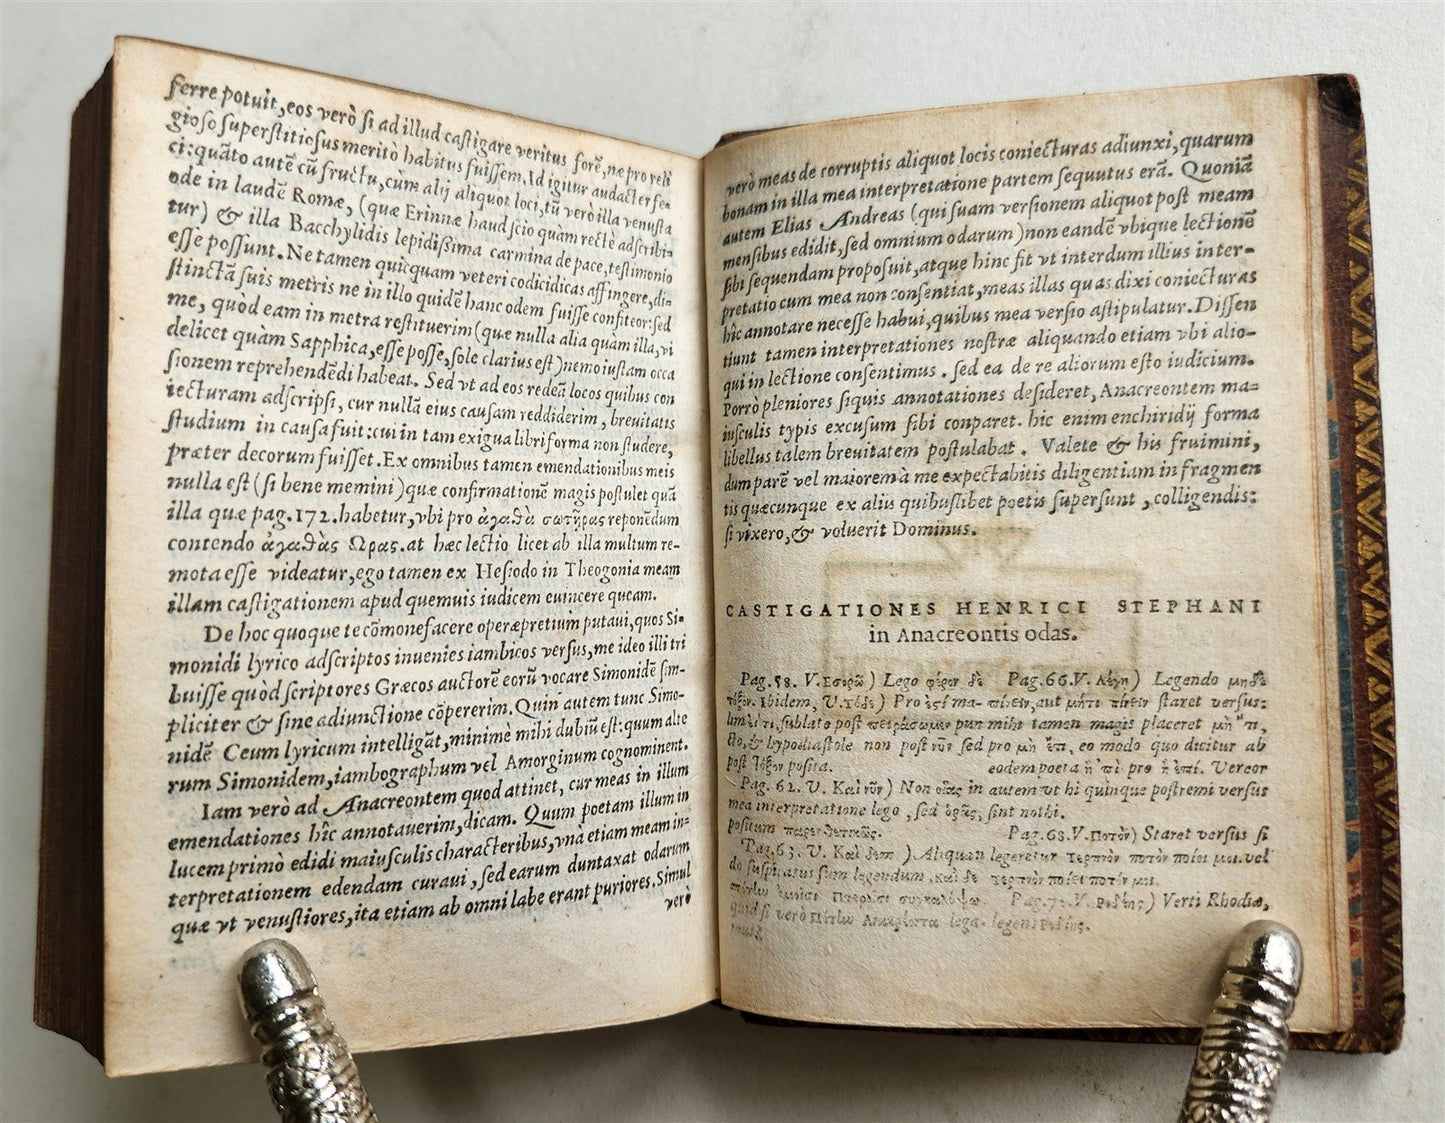 ferre potuit, eos verò ſi ad illud caſtigare veritus forē, næ pro reli
gioſo ſuperſtitioſus meritò habitus fuiſſem. Id igitur audacter fe-
ci: quāto autē cū fructu, cùm alij aliquot loci, tū verò illa venuſta
ode in laudē Romæ, (quæ Erinnæ haud ſcio quàm rectè adſcribi-
tur) & illa Bacchylidis lepidißima carmina de pace, teſtimonio
eſſe poſſunt. Ne tamen quicquam veteri codici dicas affingere, di-
ſtinctā ſuis metris ne in illo quidē hanc odem fuiſſe confiteor: ſed
me, quòd eam in metra reſtituerim (quæ nulla alia quàm illa, vi
delicet quàm Sapphica, eſſe poſſe, ſole clarius eſt) nemo iuſtam occa
ſionem reprehendēdi habeat. Sed vt ad eos redeā locos quibus con
iecturam adſcripſi, cur nullā eius cauſam reddiderim, breuitatis
ſtudium in cauſa fuit: cui in tam exigua libri forma non ſtudere,
præter decorum fuiſſet. Ex omnibus tamen emendationibus meis
nulla eſt (ſi bene memini) quæ confirmationē magis poſtulet quā
illa quæ pag. 172. habetur, vbi pro ἀγαθὰ σωτῆρας reponēdum
contendo ἀγαθὰς Ὥρας. at hæc lectio licet ab illa multum re-
mota eſſe videatur, ego tamen ex Heſiodo in Theogonia meam
illam caſtigationem apud quemuis iudicem euincere queam.
De hoc quoque te cōmonefacere operæpretium putaui, quos Si-
monidi lyrico adſcriptos inuenies iambicos verſus, me ideo illi tri
buiſſe quòd ſcriptores Græcos auctorē eorū vocare Simonidē ſim-
pliciter & ſine adiunctione cōpererim. Quin autem tunc Simo-
nidē Ceum lyricum intelligāt, minimè mihi dubiū eſt: quum alte
rum Simonidem, iambographum vel Amorginum cognominent.
Iam verò ad Anacreontem quod attinet, cur meas in illum
emendationes hîc annotauerim, dicam. Quum poetam illum in
lucem primò edidi maiuſculis characteribus, vnà etiam meam in-
terpretationem edendam curaui, ſed earum duntaxat odarum
quæ vt venuſtiores, ita etiam ab omni labe erant puriores. Simul
verò
verò meas de corruptis aliquot locis coniecturas adiunxi, quarum
bonam in illa mea interpretatione partem ſequutus erā. Quoniā
autem Elias Andreas (qui ſuam verſionem aliquot poſt meam
menſibus edidit, ſed omnium odarum) non eandē vbique lectionē
ſibi ſequendam propoſuit, atque hinc fit vt interdum illius inter-
pretatio cum mea non conſentiat, meas illas quas dixi coniecturas
hîc annotare neceſſe habui, quibus mea verſio aſtipulatur. Diſſen
tiunt tamen interpretationes noſtræ aliquando etiam vbi alio-
qui in lectione conſentimus. ſed ea de re aliorum eſto iudicium.
Porrò pleniores ſiquis annotationes deſideret, Anacreontem ma-
iuſculis typis excuſum ſibi conparet. hîc enim enchiridij forma
libellus talem breuitatem poſtulabat. Valete & his fruimini,
dum parē vel maiorem à me expectabitis diligentiam in fragmen
tis quæcunque ex aliis quibuſlibet poetis ſuperſunt, colligendis:
ſi vixero, & voluerit Dominus.
CASTIGATIONES HENRICI STEPHANI
in Anacreontis odas.
Pag. 58. V. Εσορῶ) Lego Pag. 66. V. Λέγη) Legendo
Ibidem, V. τόδε) Pro ἐπί μα- πίνειν, aut μήτι πίνειν ſtaret verſus:
ſublato poſt πειράσωμεν pun mihi tamen magis placeret μὴ 'πι,
cto, & hypodiaſtole non poſt νῦν ſed pro μὴ ἐπι, eo modo quo dicitur ab
poſt τόξον poſita. eodem poeta ἢ 'πὶ pro ἢ ἐπί. Vereor
Pag. 62. V. Καὶ νῦν) Non in autem vt hi quinque poſtremi verſus
mea interpretatione lego, ſed ὁρᾷς, ſint nothi.
poſitum Pag. 68. V. Ποτὸν) Staret verſus ſi
Pag. 63. V. Καὶ) Aliquan legeretur τερπνὸν ποτὸν ποίει μοι. vel
do ſuſpicatus ſum legendum, καὶ δὲ τερπνὸν ποίει ποτόν μοι.
Pag. 7 V. Ροδίης) Verti Rhodiæ,
quid ſi verò lega- legens Ροδίης.